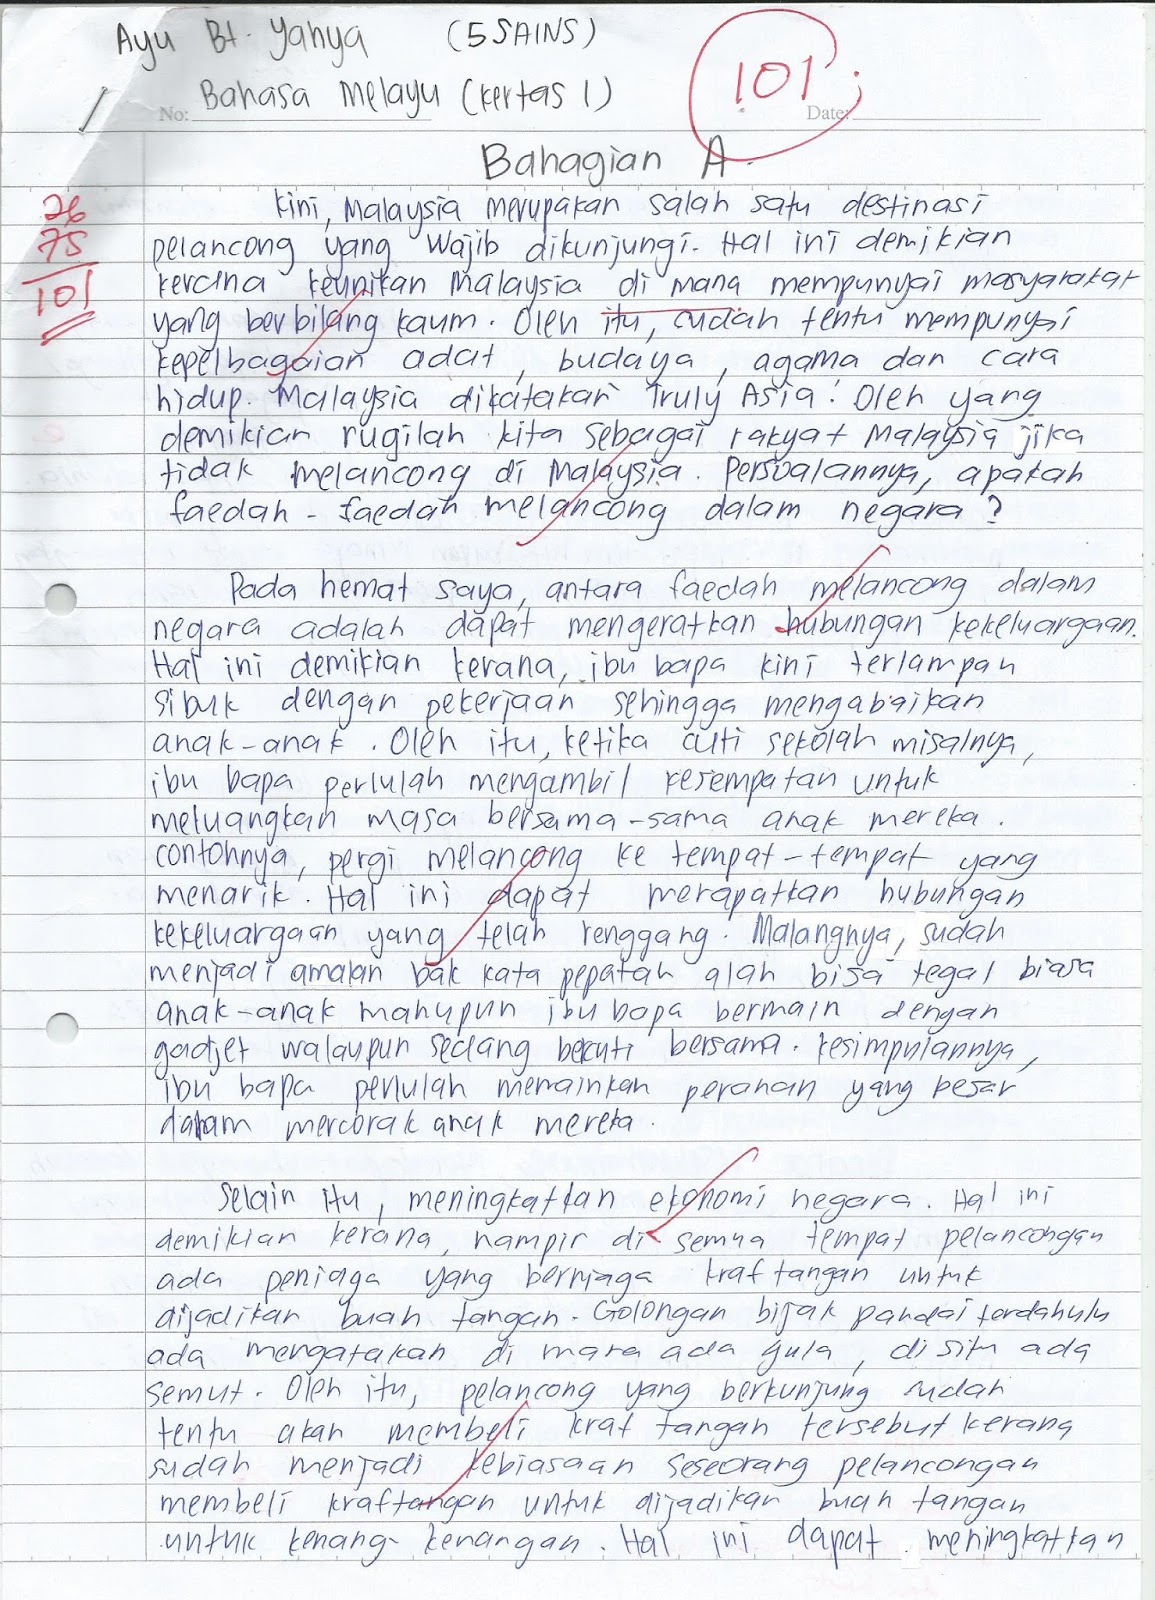 Ayu Bt. Yahya (5 SAINS)
101
No: Bahasa Melayu (Kertas 1)
Date:
Bahagian A.
26
75
101
Kini, Malaysia merupakan salah satu destinasi
pelancong yang wajib dikunjungi. Hal ini demikian
kerana keunikan Malaysia di mana mempunyai masyarakat
yang berbilang kaum. Oleh itu, sudah tentu mempunyai
kepelbagaian adat, budaya, agama dan cara
hidup. Malaysia dikatakan Truly Asia. Oleh yang
demikian rugilah kita sebagai rakyat Malaysia jika
tidak melancong di Malaysia. Persoalannya, apakah
faedah-faedah melancong dalam negara?
Pada hemat saya, antara faedah melancong dalam
negara adalah dapat mengeratkan hubungan kekeluargaan.
Hal ini demikian kerana, ibu bapa kini terlampau
sibuk dengan pekerjaan sehingga mengabaikan
anak-anak. Oleh itu, ketika cuti sekolah misalnya,
ibu bapa perlulah mengambil kesempatan untuk
meluangkan masa bersama-sama anak mereka.
Contohnya, pergi melancong ke tempat-tempat yang
menarik. Hal ini dapat merapatkan hubungan
kekeluargaan yang telah renggang. Malangnya, sudah
menjadi amalan bak kata pepatah alah bisa tegal biasa
anak-anak mahupun ibu bapa bermain dengan
gadjet walaupun sedang becuti bersama. Kesimpulannya,
ibu bapa perlulah memainkan peranan yang besar
dalam mencorak anak mereka.
Selain itu, meningkatkan ekonomi negara. Hal ini
demikian kerana, hampir di semua tempat pelancongan
ada peniaga yang berniaga kraf tangan untuk
dijadikan buah tangan. Golongan bijak pandai terdahulu
ada mengatakan di mana ada gula, di situ ada
semut. Oleh itu, pelancong yang berkunjung sudah
tentu akan membeli kraf tangan tersebut kerana
sudah menjadi kebiasaan seseorang pelancongan
membeli kraftangan untuk dijadikan buah tangan
untuk kenang-kenangan. Hal ini dapat meningkatkan